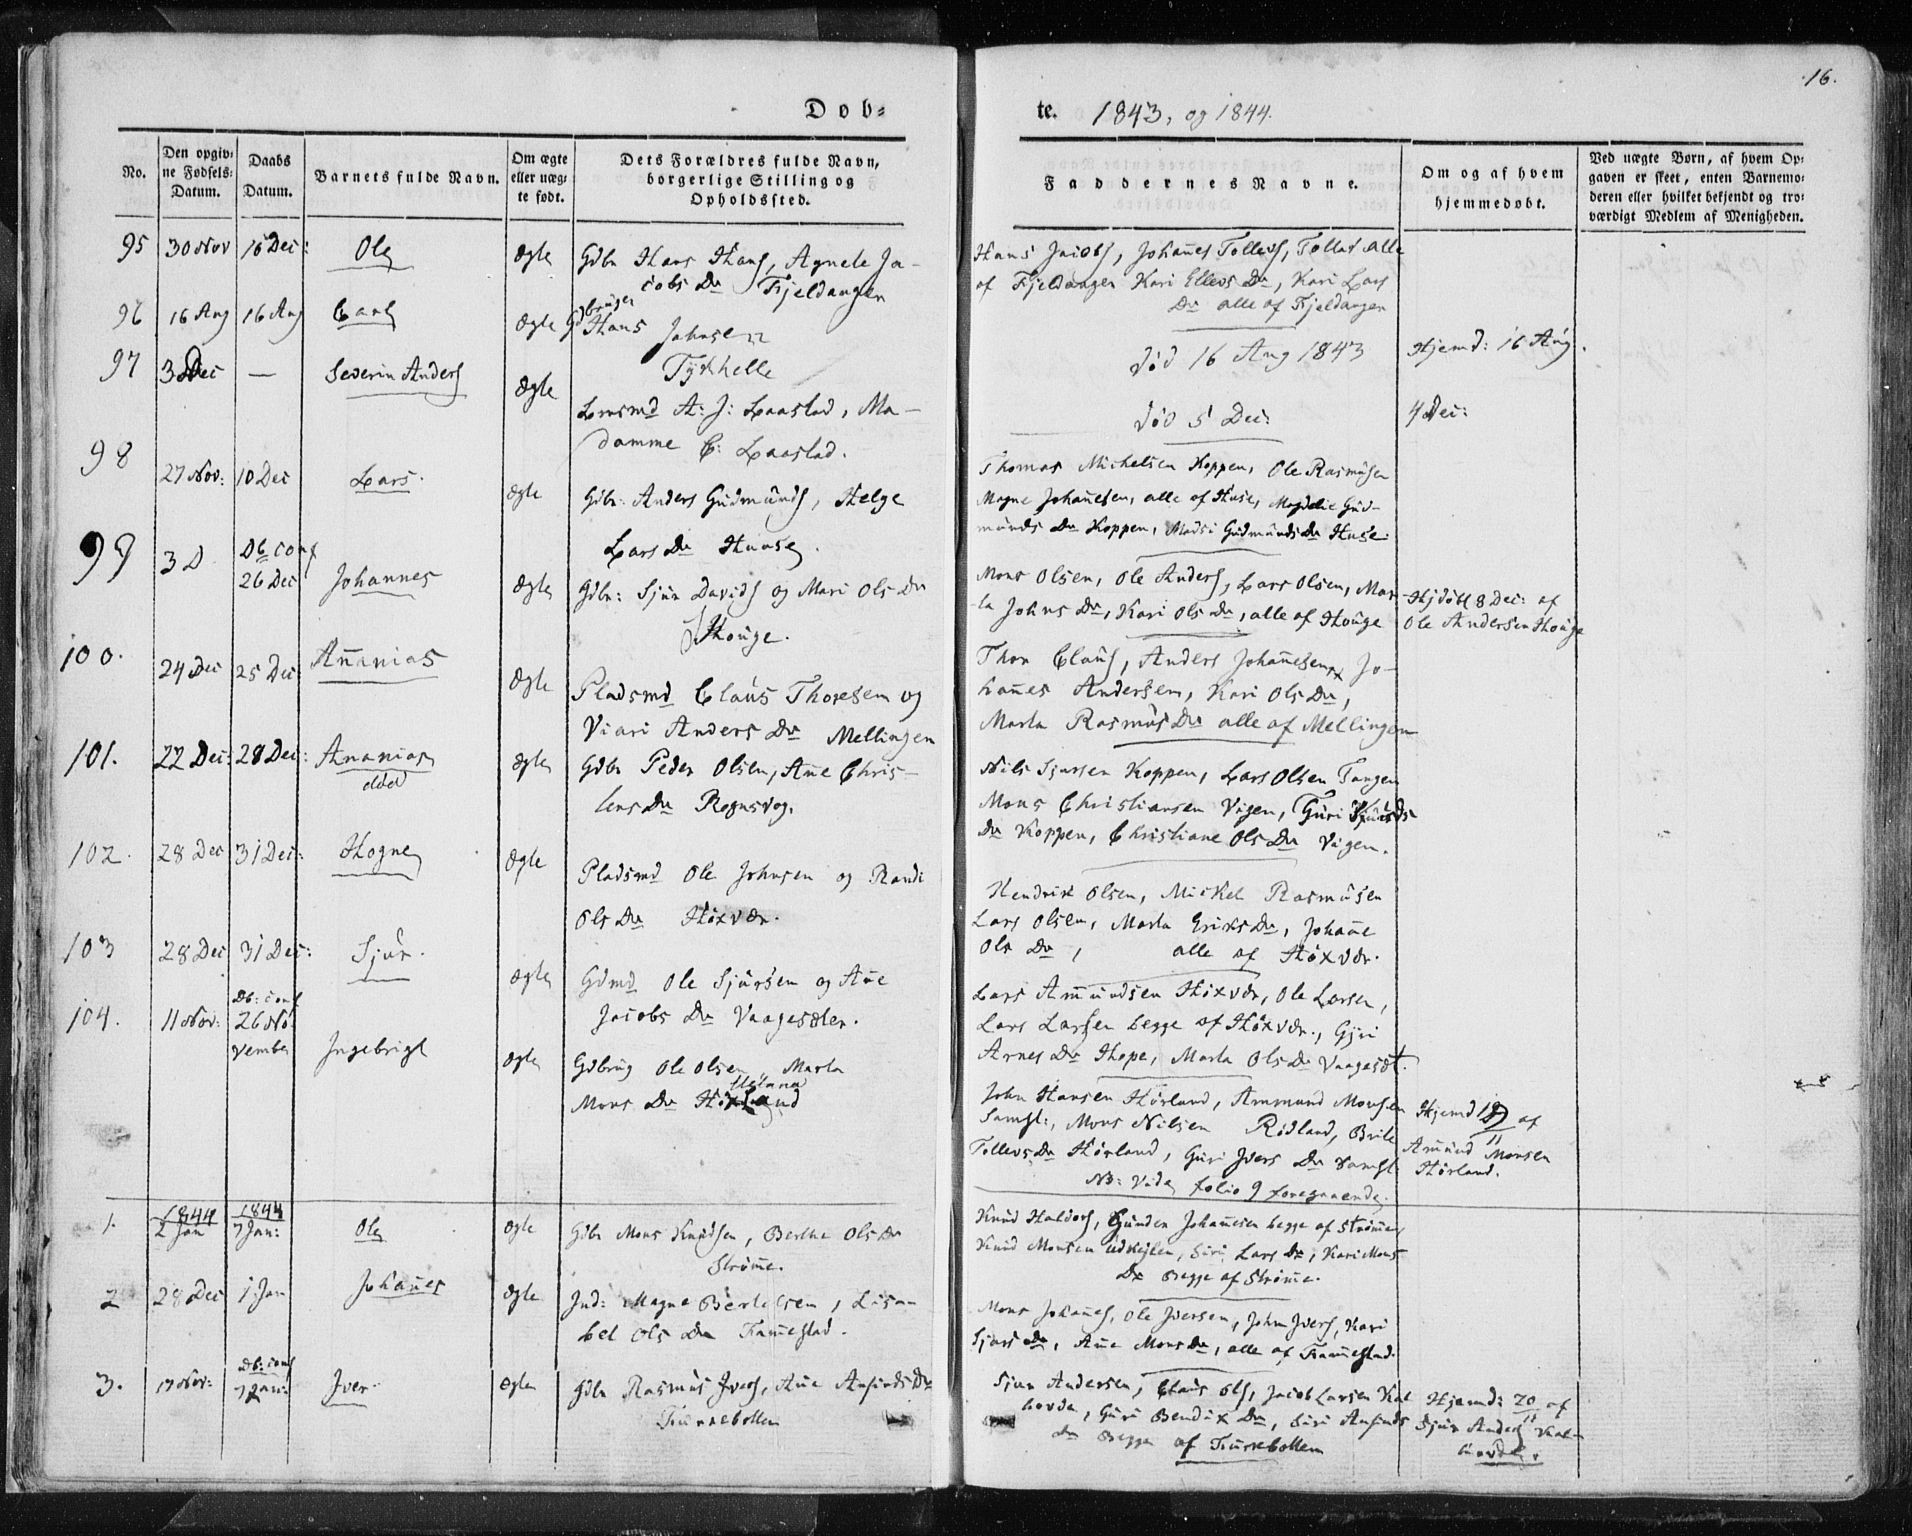 16.
Døb-
te. 1843, og 1844.
No.
Den opgiv-
ne Fødsels-
Datum.
Daabs
Datum.
Barnets fulde Navn.
Om ægte
eller uæg-
te født.
Dets Forældres fulde Navn,
borgerlige Stilling og
Opholdssted.
Faddernes Navne.
Om og af hvem
hjemmedøbt.
Ved uægte Børn, af hvem Op-
gaven er skeet, enten Barnemo-
deren eller hvilket bekjendt og tro-
værdigt Medlem af Menigheden.
95 30 Nov 16 Dec: Ole Ægte
Gdbr Hans Hans, Agnete Ja-
cobs Dr Fjeldanger
Hans Jacobs, Johanes Tollevs, Tollat alle
af Fjeldanger Kari Ellevs Dr, Kari Lars
Dr alle af Fjeldanger
96 16 Aug 16 Aug Carl Ægte
Gdbruger
Hans Johnsen
Tyshelle
død 16 Aug 1843
Hjemd: 16 Aug.
97 3 Dec — Severin Anders Ægte
A: J: Laastad, Ma-
damme C: Laastad.
død 5 Dec:
4 Dec:
98 27 Nov: 10 Dec Lars. Ægte
Gdbr: Anders Gudmunds, Helge
Lars Dr Huuse.
Thomas Michelsen Hoppen, Ole Rasmusen
Magne Johanesen, alle af Huse, Magdele Gud-
munds Dr Hoppen, Madsi Gudmunds Dr Huse.
99 3 D Db conf
26 Dec Johannes Ægte
Gdbr: Sjur Davids og Mari Ols Dr
Houge.
Mons Olsen, Ole Anders, Lars Olsen, Mar-
ta Johns Dr, Kari Ols Dr, alle af Houge
Hjdøbt 8 Dec: af
Ole Andersen Houge
100. 24 Dec 25 Dec Ananias Ægte
Pladsmd Claus Thoresen og
Anders Dr Mellingen
Thor Claus, Anders Johanesen, Jo-
hanes Andersen, Kari Ols Dr,
Marta Rasmus Dr alle af Mellingen
101. 22 Dec: 28 Dec: Ananias
død
Ægte
Gdbr Peder Olsen, Ane Chris-
tens Dr Rognsvog.
Nils Sjursen Hoppen, Lars Olsen Tangen
Mons Christiansen Vigen, Guri Sjurs
Dr Hoppen, Christiane Ols Dr Vigen.
102. 28 Dec 31 Dec: Hogne Ægte
Pladsmd Ole Johnsen og Randi
Ols Dr Høxvær.
Hendrik Olsen, Mickel Rasmusen
Lars Olsen, Marta Eriks Dr, Johane
Ols Dr, alle af Høxvær.
103 28 Dec 31 Dec: Sjur. Ægte
Gdmd Ole Sjursen og Ane
Jacobs Dr Vaagesæter.
Lars Amundsen Høxvær, Ole Larsen,
Lars Larsen begge af Høxvær, Gjri
Arnes Dr Hope, Marta Ols Dr Vaagesæt.
104. 11 Nov: Db: conf
26 No-
vember Ingebrigt Ægte
Gdbrug Ole Olsen, Marta
Mons Dr
John Hansen Hørland, Ammund Monsen
Samst:, Mons Nilsen Rødland, Brite
Tollevs Dr Hørland, Guri Ivers Dr samst
NB: Vide folio 9 foregaaende.
Hjemd af
Amund Monsen
Hørland.
1844 1844
1. 2 Jan 7 Jan: Ole Ægte
Gdbr Mons Knudsen, Berthe Ols Dr
Strømme.
Knud Haldors, Gunder Johanesen begge af Strømme
Knud Monsen Udkejlen, Siri Lars Dr, Kari Mons
Dr begge af Strømme.
2 28 Dec 1 Jan Johanes Ægte
Ind: Magne Bertelsen, Lisa-
bet Ols Dr Framestad.
Mons Johanes, Ole Iversen, John Ivers, Kari
Sjurs Dr, Ane Mons Dr, alle af Framestad.
3. 17 Nov: Db: conf
7 Jan: Iver. Ægte
Gdbr Rasmus Ivers, Ane Anfinds Dr
Turrebotten
Sjur Andersen, Claus Ols, Jacob Larsen Kal-
hovde, Guri Bendix Dr, Siri Anfinds
Dr begge af Turrebotten
Hjemd: 20/11 af
Sjur Anders Kal-
hovde.